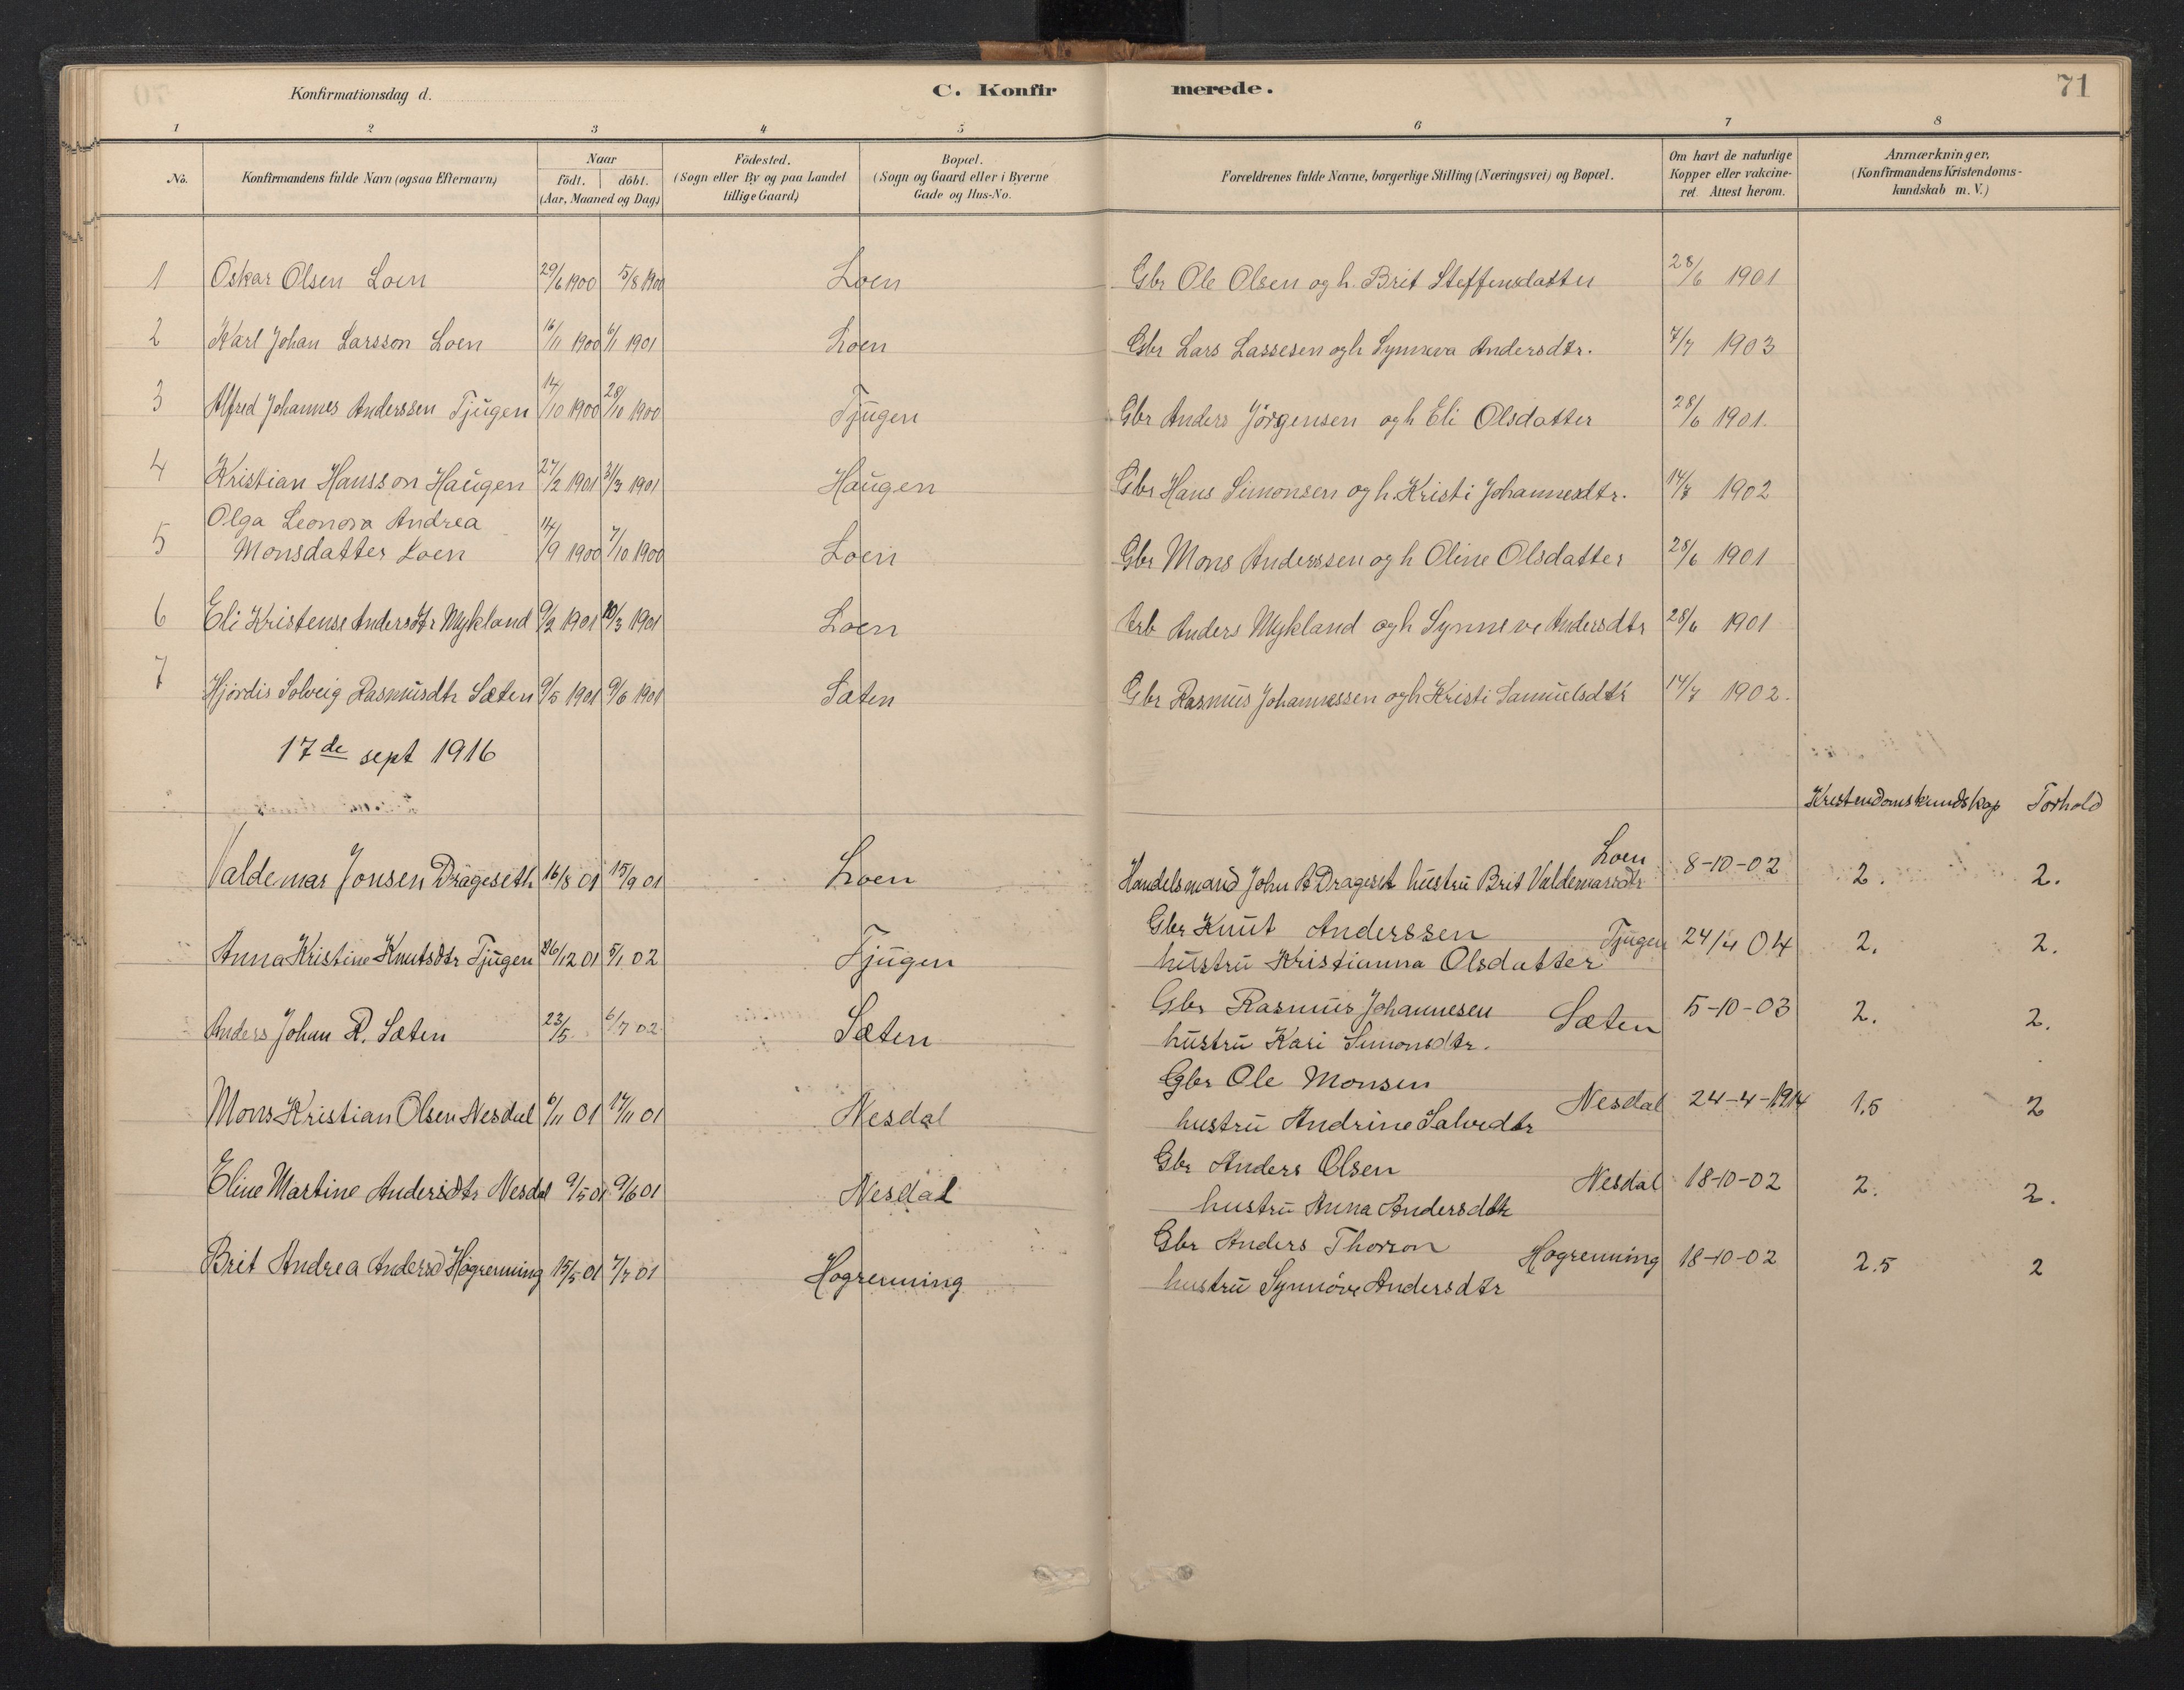 Konfirmationsdag d.
C. Konfirmerede.
71
1 2 3 4 5 6 7 8
No.
Konfirmandens fulde Navn (ogsaa Efternavn)
Naar
födt. döbt.
(Aar, Maaned og Dag)
Födested.
(Sogn eller By og paa Landet
tillige Gaard)
Bopæl.
(Sogn og Gaard eller i Byerne
Gade og Hus-No.
Forældrenes fulde Navne, borgerlige Stilling (Næringsvei) og Bopæl.
Om havt de naturlige
Kopper eller vakcine-
ret. Attest herom.
Anmærkninger.
(Konfirmandens Kristendoms-
kundskab m. V.)
1 Oskar Olsen Loen 29/6 1900 5/8 1900 Loen Gbr Ole Olsen og h. Brit Steffensdatter 28/6 1901
2 Karl Johan Larsson Loen 16/11 1900 6/1 1901 Loen Gbr Lars Lassesen og h Synneva Andersdtr. 7/7 1903
3 Alfred Johannes Anderssen Tjugen 14/10 1900 28/10 1900 Tjugen Gbr Anders Jörgensen og h Eli Olsdatter 28/6 1901.
4 Kristian Hansson Haugen 27/2 1901 31/3 1901 Haugen Gbr Hans Simonsen og h. Kristi Johannesdtr. 14/7 1902
Olga Leonora Andrea
5 Monsdatter Loen 14/9 1900 7/10 1900 Loen Gbr Mons Anderssen og h Oline Olsdatter 28/6 1901
6 Eli Kristense Andersdtr Mykland 9/2 1901 10/3 1901 Loen Arb Anders Mykland og h Synneve Andersdtr 28/6 1901
7 Hjördis Solveig Rasmusdtr Sæten 9/5 1901 9/6 1901 Sæten Gbr Rasmus Johannessen og h Kristi Samuelsdtr 14/7 1902.
17de sept 1916
Kristendomskundskap Forhold
Valdemar Jonsen Drageseth 16/8 01 15/9 01 Loen Handelsmand John A Drageset hustru Brit Valdemarsdtr Loen 8-10-02 2. 2.
Anna Kristine Knutsdtr Tjugen 26/12 01 5/1 02 Tjugen Gbr Knut Anderssen
hustru Kristianna Olsdatter Tjugen 24/4 04 2. 2.
Anders Johan R. Sæten 23/5 6/7 02 Sæten Gbr Rasmus Johannesen
hustru Kari Simonsdtr. Sæten 5-10-03 2. 2.
Mons Kristian Olsen Nesdal 6/11 01 17/11 01 Nesdal Gbr Ole Monsen
hustru Andrine Salvedtr Nesdal 24-4-1914 1,5 2
Eline Martine Andersdtr Nesdal 9/5 01 9/6 01 Nesdal Gbr Anders Olsen
hustru Anna Andersdtr Nesdal 18-10-02 2. 2.
Brit Andrea Andersd Högrenning 15/5 01 7/7 01 Hogrenning Gbr Anders Thorson
hustru Synnöve Andersdtr Hogrenning 18-10-02 2.5 2